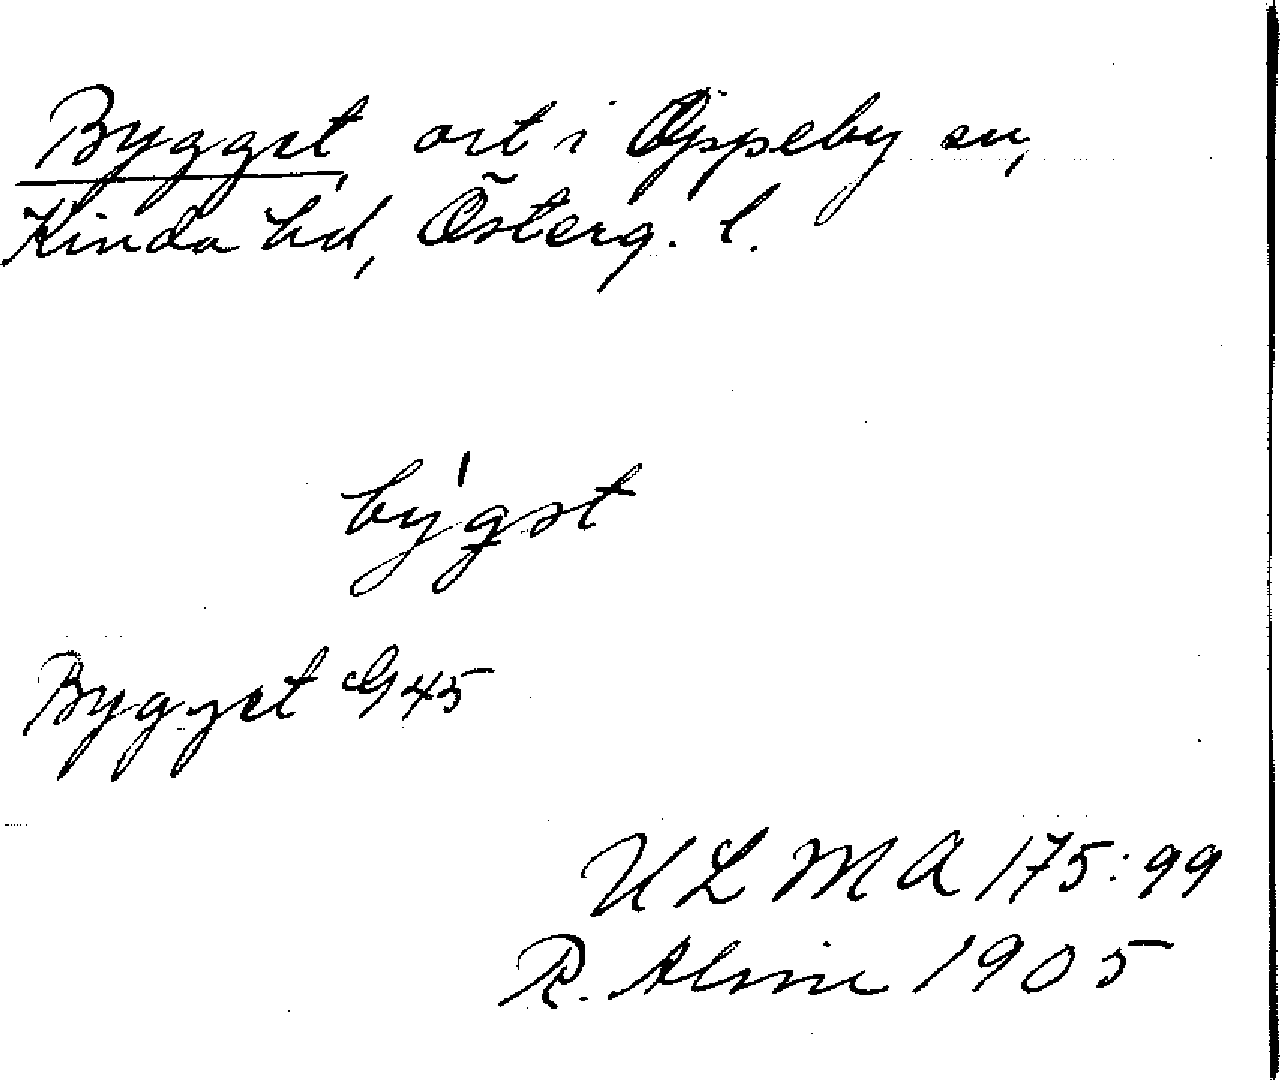 Bygget, ort i Oppeby sn,
Kinda hd, Österg. l.
býgst
Bygget G 45
ULMA 175:99
R. Alvin 1905